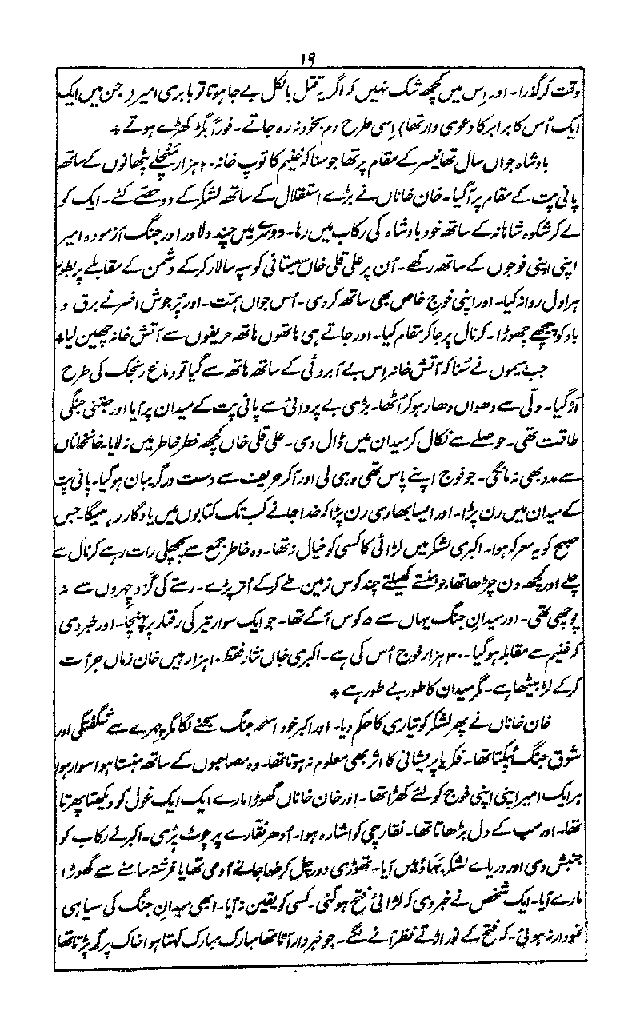 ۱۹
وقت کر گذرا۔ اور اس میں کچھ شک نہیں کہ اگر یہ قتل بالکل بے جا ہوتا تو بابری امیر (جن میں ایک
ایک اُس کا برابر کا دعوی دار تھا) اسی طرح دم بخود نہ رہ جاتے۔ فوراً بگڑ کھڑے ہوتے +
بادشاہ جواں سال تھانیسر کے مقام پر تھا جو سنا کہ غنیم کا توپ خانہ ۲۰ ہزار منچلے پٹھانوں کے ساتھ
پانی پت کے مقام پر آگیا۔ خان خاناں نے بڑے استقلال کے ساتھ لشکر کے دو حصے کئے۔ ایک کو
لے کر شکوہ شاہانہ کے ساتھ خود بادشاہ کی رکاب میں رہا۔ دوسرے میں چند دلاور اور جنگ آزمودہ امیر
اپنی اپنی فوجوں کے ساتھ رکھے۔ اُن پر علی قلی خاں سیستانی کو سپہ سالار کر کے دشمن کے مقابلے پر بطور
ہراول روانہ کیا۔ اور اپنی فوج خاص بھی ساتھ کردی۔ اُس جواں ہمت۔ اور پُر جوش افسر نے برق و
باد کو پیچھے چھوڑا۔ کرنال پر جاکر مقام کیا۔ اور جاتے ہی ہاتھوں ہاتھ حریفوں سے آتش خانہ چھین لیا +
جب ہیموں نے سُنا کہ آتش خانہ اس بے آبروئی کے ساتھ ہاتھ سے گیا تو دماغ رنجک کی طرح
اُڑ گیا۔ دلّی سے دھواں دھار ہو کر اُٹھا۔ بڑی بے پروائی سے پانی پت کے میدان پر آیا اور جتنی جنگی
طاقت تھی۔ حوصلے سے نکال کر میدان میں ڈال دی۔ علی قلی خاں کچھ خطر خاطر میں نہ لایا۔ خانخاناں
سے مدد بھی نہ مانگی۔ جو فوج اپنے پاس تھی وہی لی اور آکر حریف سے دست و گریبان ہوگیا۔ پانی پت
کے میدان میں رن پڑا۔ اور ایسا بھاری رن پڑا کہ خدا جانے کب تک کتابوں میں یادگار رہیگا۔ جس
صبح کو یہ معرکہ ہوا۔ اکبری لشکر میں لڑائی کا کسی کو خیال نہ تھا۔ وہ خاطر جمع سے پچھلی رات رہے کرنال سے
چلے اور کچھ دن چڑھا تھا جو ہنستے کھیلتے چند کوس زمین طے کر کے اُتر پڑے۔ رستے کی گرد چہروں سے نہ
پونچھی تھی۔ اور میدان جنگ یہاں سے ۵ کوس آگے تھا۔ جو ایک سوار تیر کی رفتار پر پہنچا۔ اور خبر دی
کہ غنیم سے مقابلہ ہوگیا۔ ۳۰ ہزار فوج اُس کی ہے۔ اکبری جاں نثار فقط ۱۰ ہزار ہیں خان زماں جرأت
کر کے لڑ بیٹھا ہے۔ مگر میدان کا طور بے طور ہے +
خان خاناں نے پھر لشکر کو تیاری کا حکم دیا۔ اور اکبر خود اسلحہ جنگ سجنے لگا مگر چہرے سے شگفتگی اور
شوق جنگ ٹپکتا تھا۔ فکر یا پریشانی کا اثر بھی معلوم نہ ہوتا تھا۔ وہ مصاحبوں کے ساتھ ہنستا ہوا سوار ہوا
ہر ایک امیر اپنی اپنی فوج کو لئے کھڑا تھا۔ اور خان خاناں گھوڑا مارے ایک ایک غول کو دیکھتا پھرتا
تھا۔ اور سب کے دل بڑھاتا تھا۔ نقارچی کو اشارہ ہوا۔ اُدھر نقارے پر چوٹ پڑی۔ اکبر نے رکاب کو
جنبش دی اور دریائے لشکر بہاؤ میں آیا۔ تھوڑی دور چل کر خدا جانے آدمی تھا یا فرشتہ سامنے سے گھوڑا
مارے آیا۔ ایک شخص نے خبر دی کہ لڑائی فتح ہوگئی۔ کسی کو یقین نہ آیا۔ ابھی میدان جنگ کی سیاہی
نمودار نہ ہوئی۔ کہ فتح کے نور اڑتے نظر آنے لگے۔ جو خبردار آتا تھا مبارک مبارک کہتا ہوا خاک پر گر پڑتا تھا